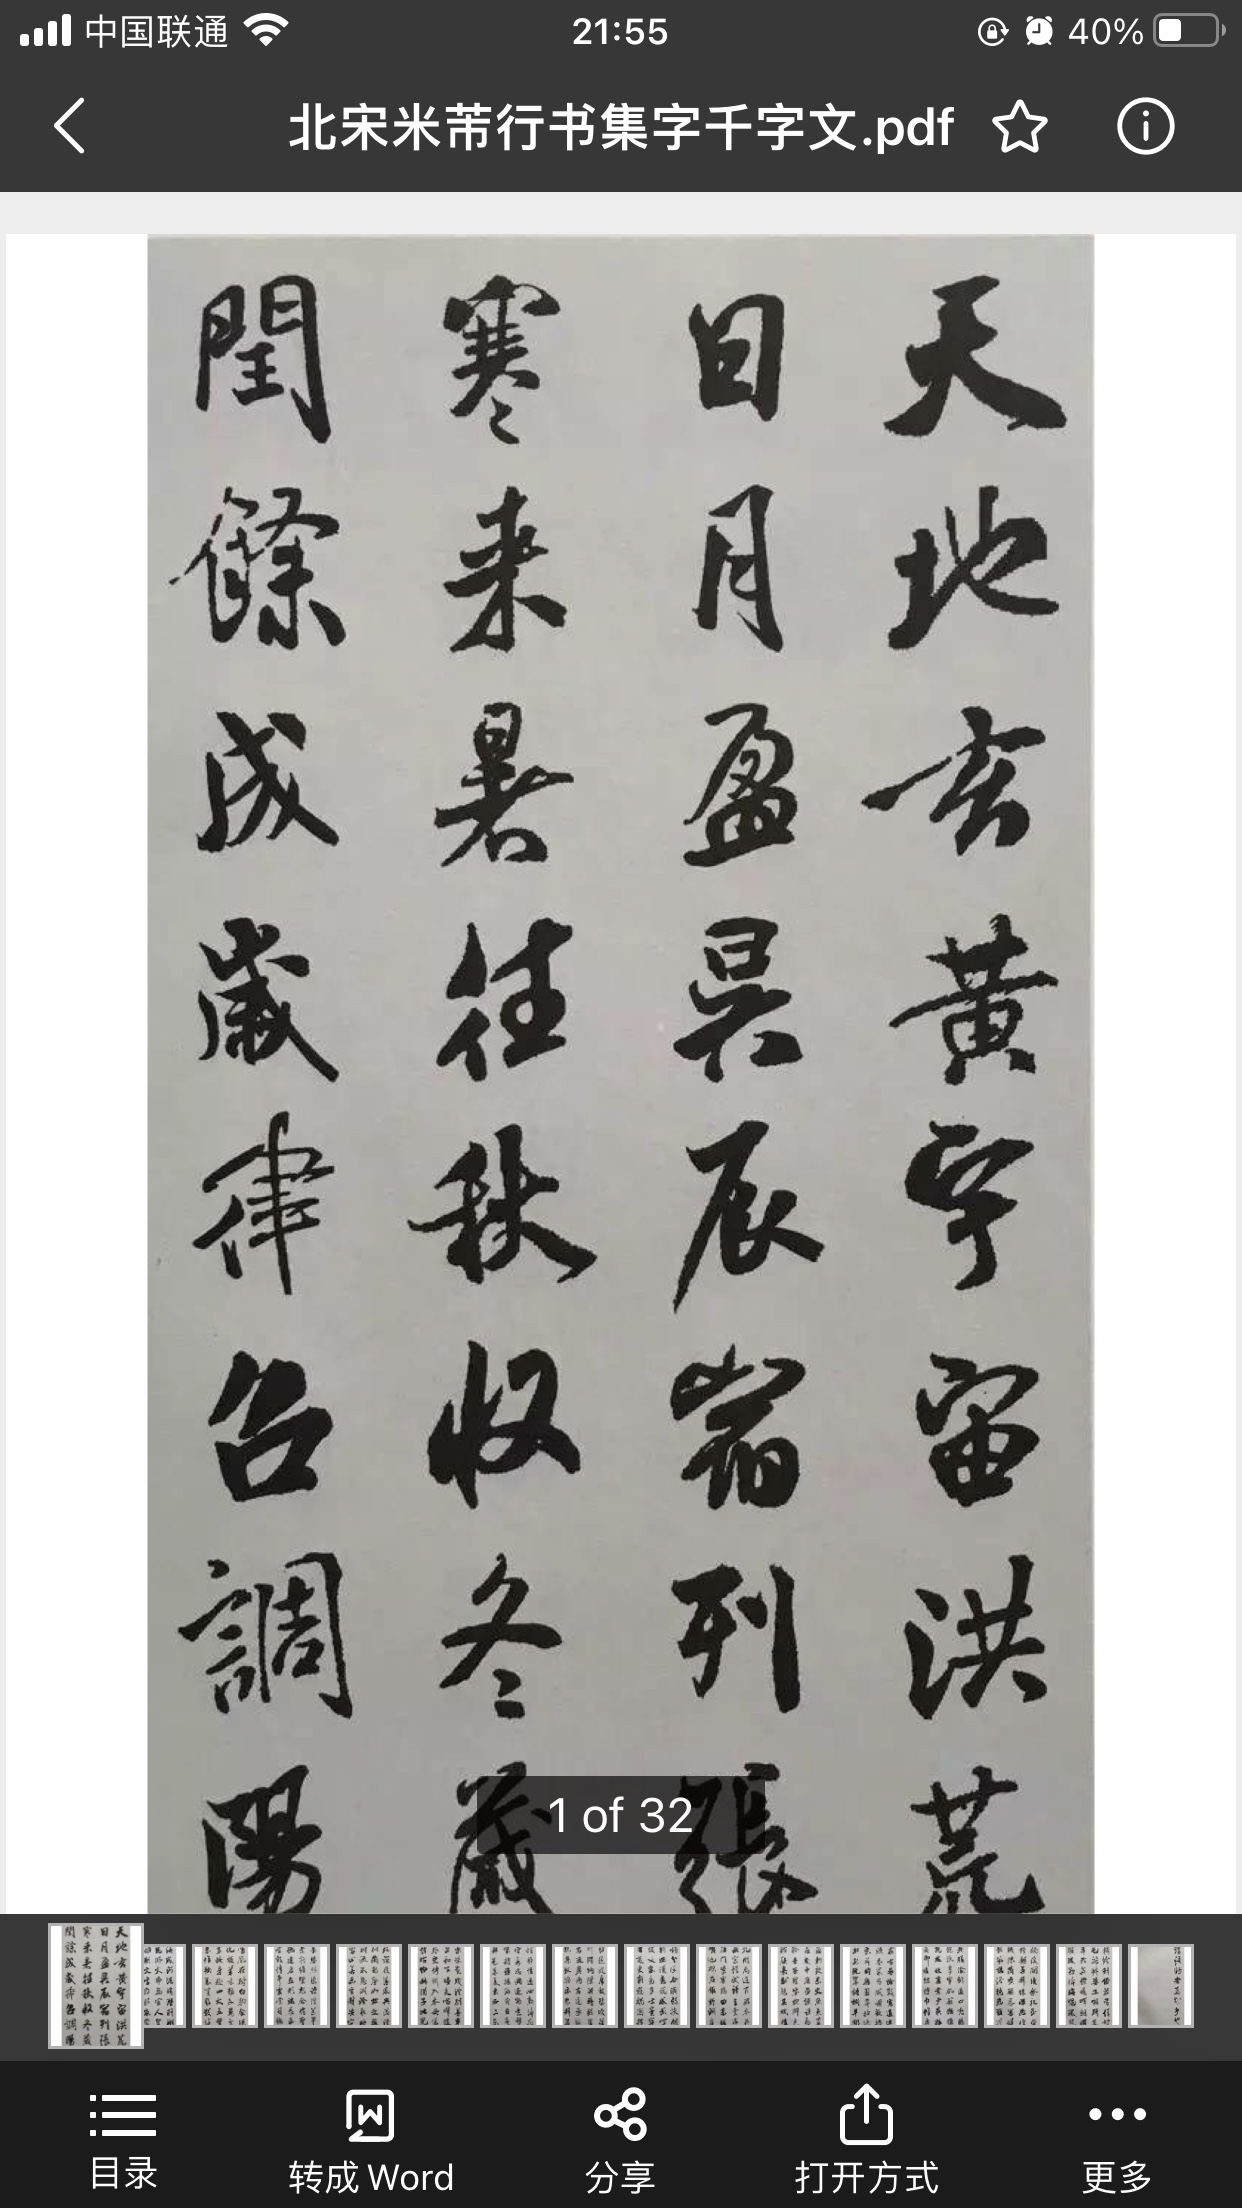 中国联通
21:55
40%
北宋米芾行书集字千字文.pdf
天地玄黃宇宙洪荒
日月盈昃辰宿列張
寒来暑往秋收冬藏
閏餘成歲律召調陽
1 of 32
目录
转成Word
分享
打开方式
更多